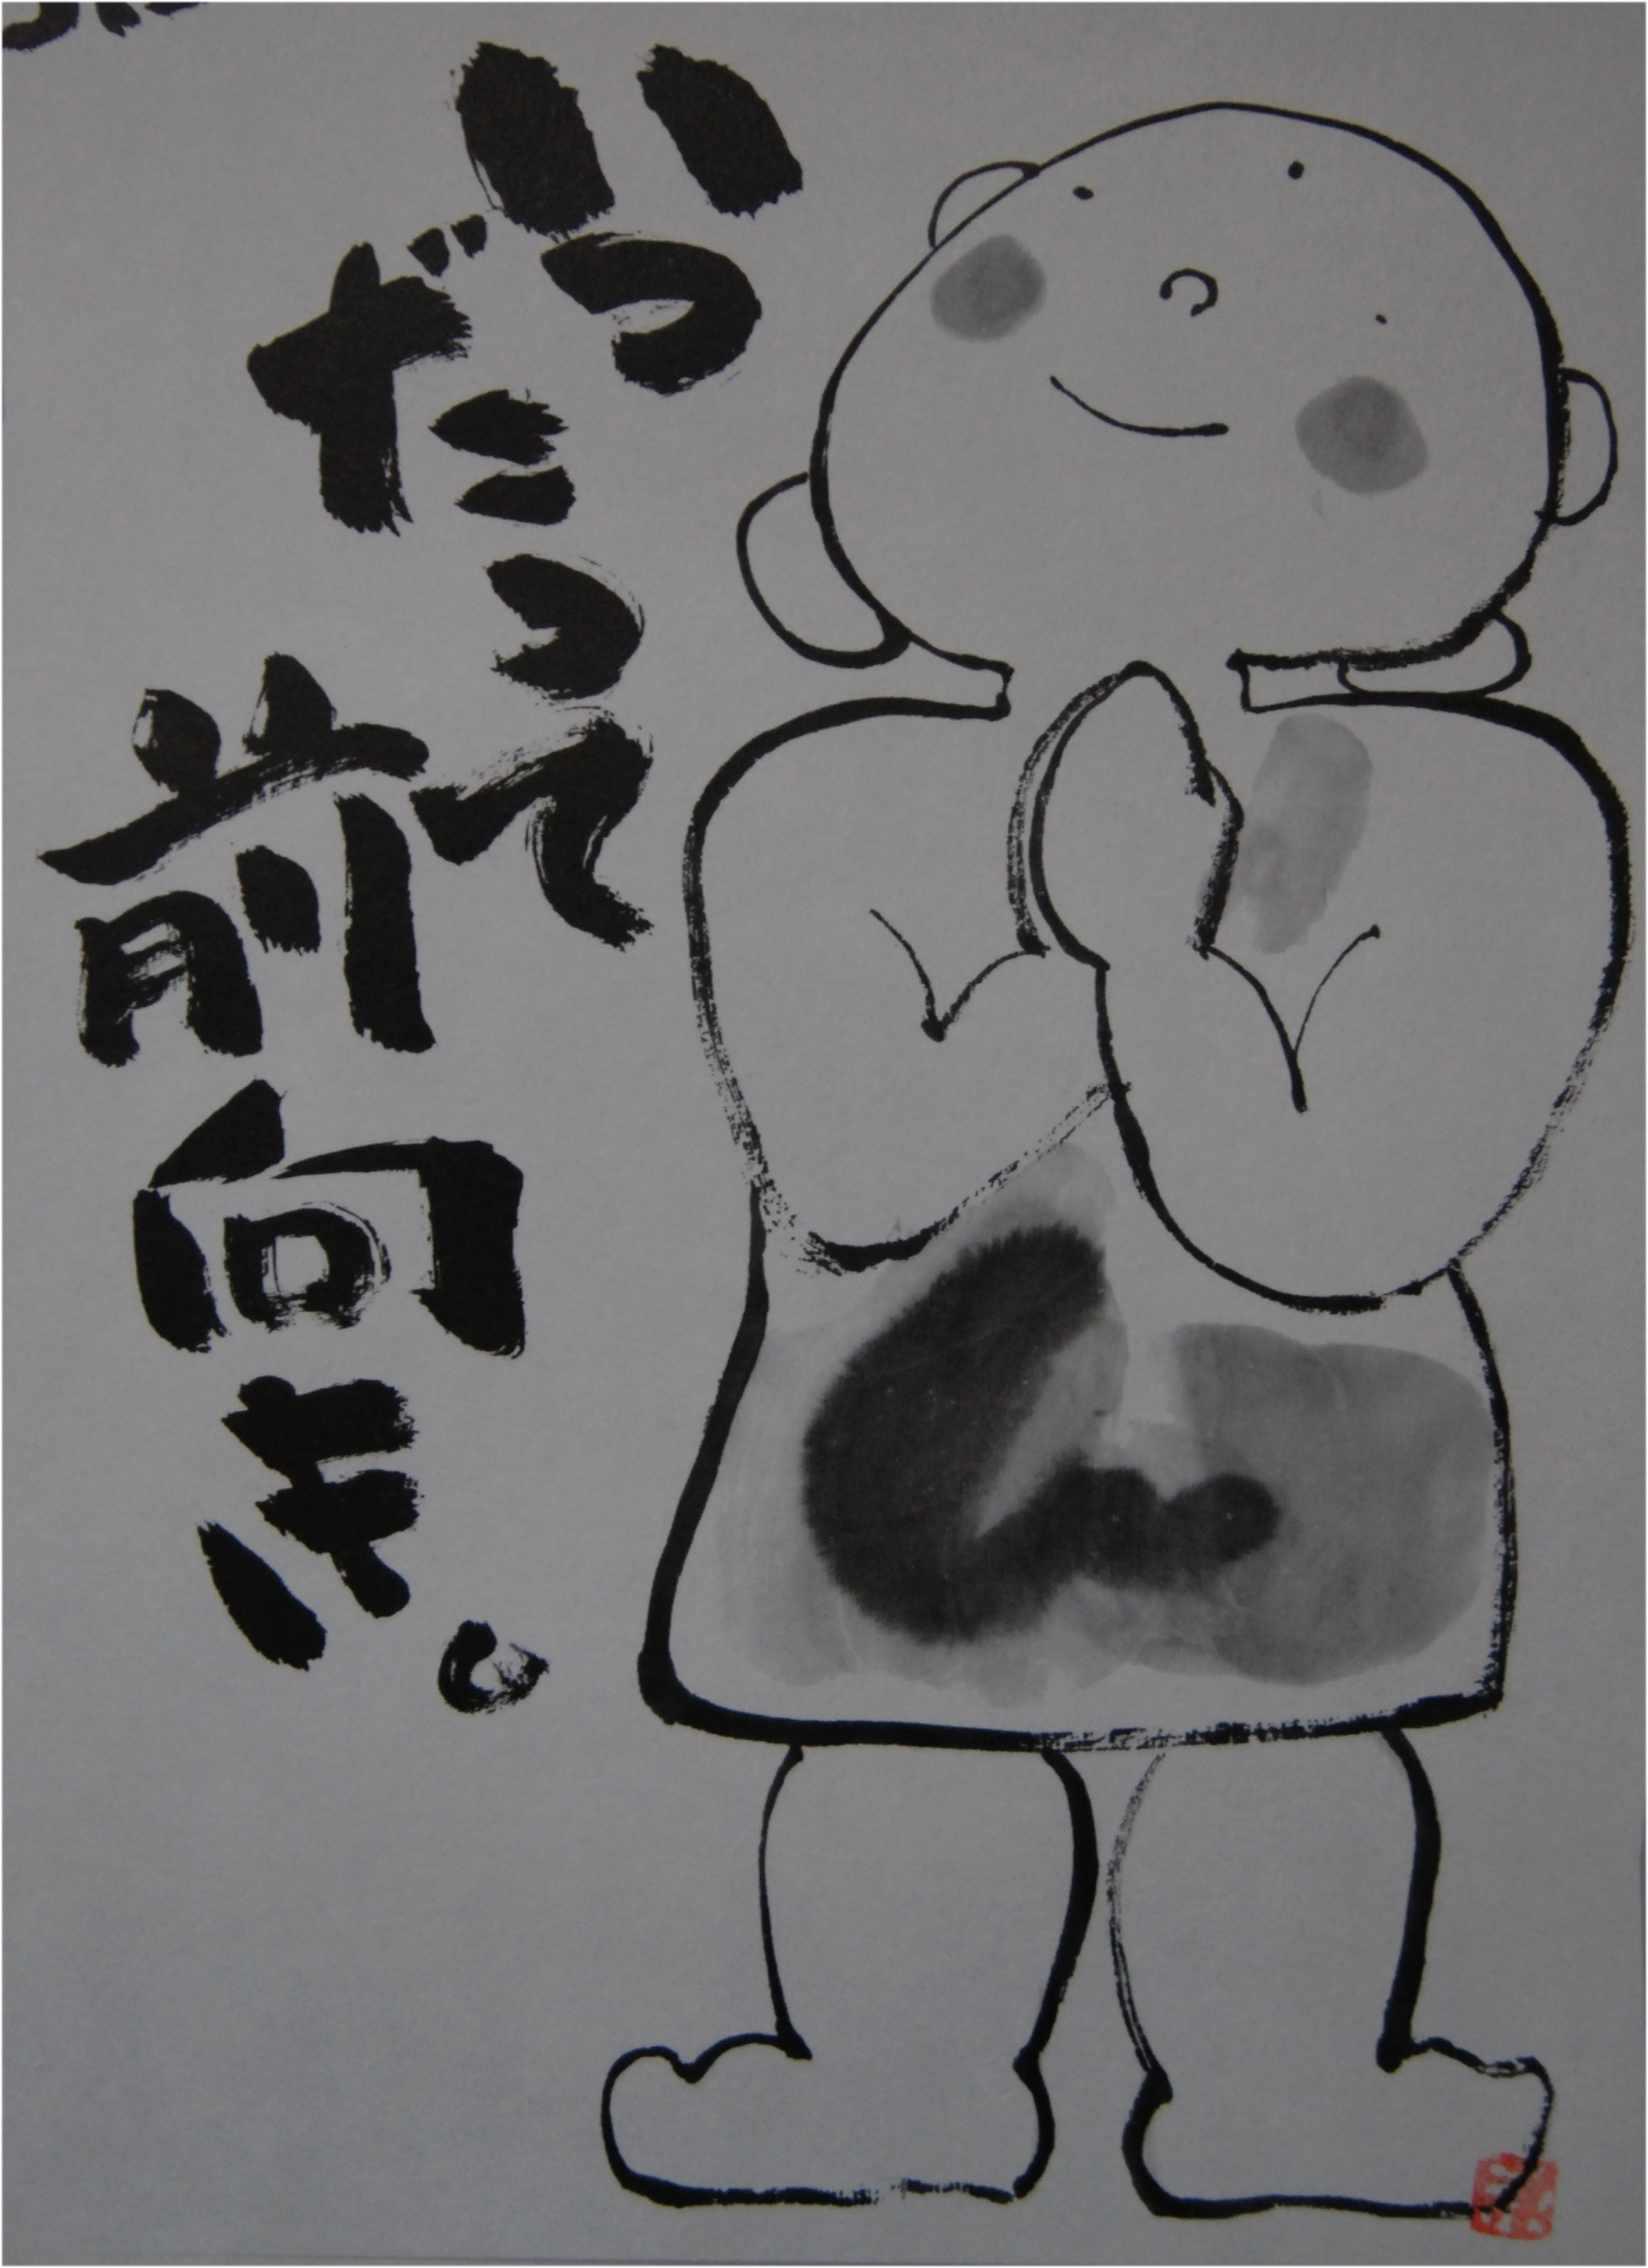 いつだって
前向き。